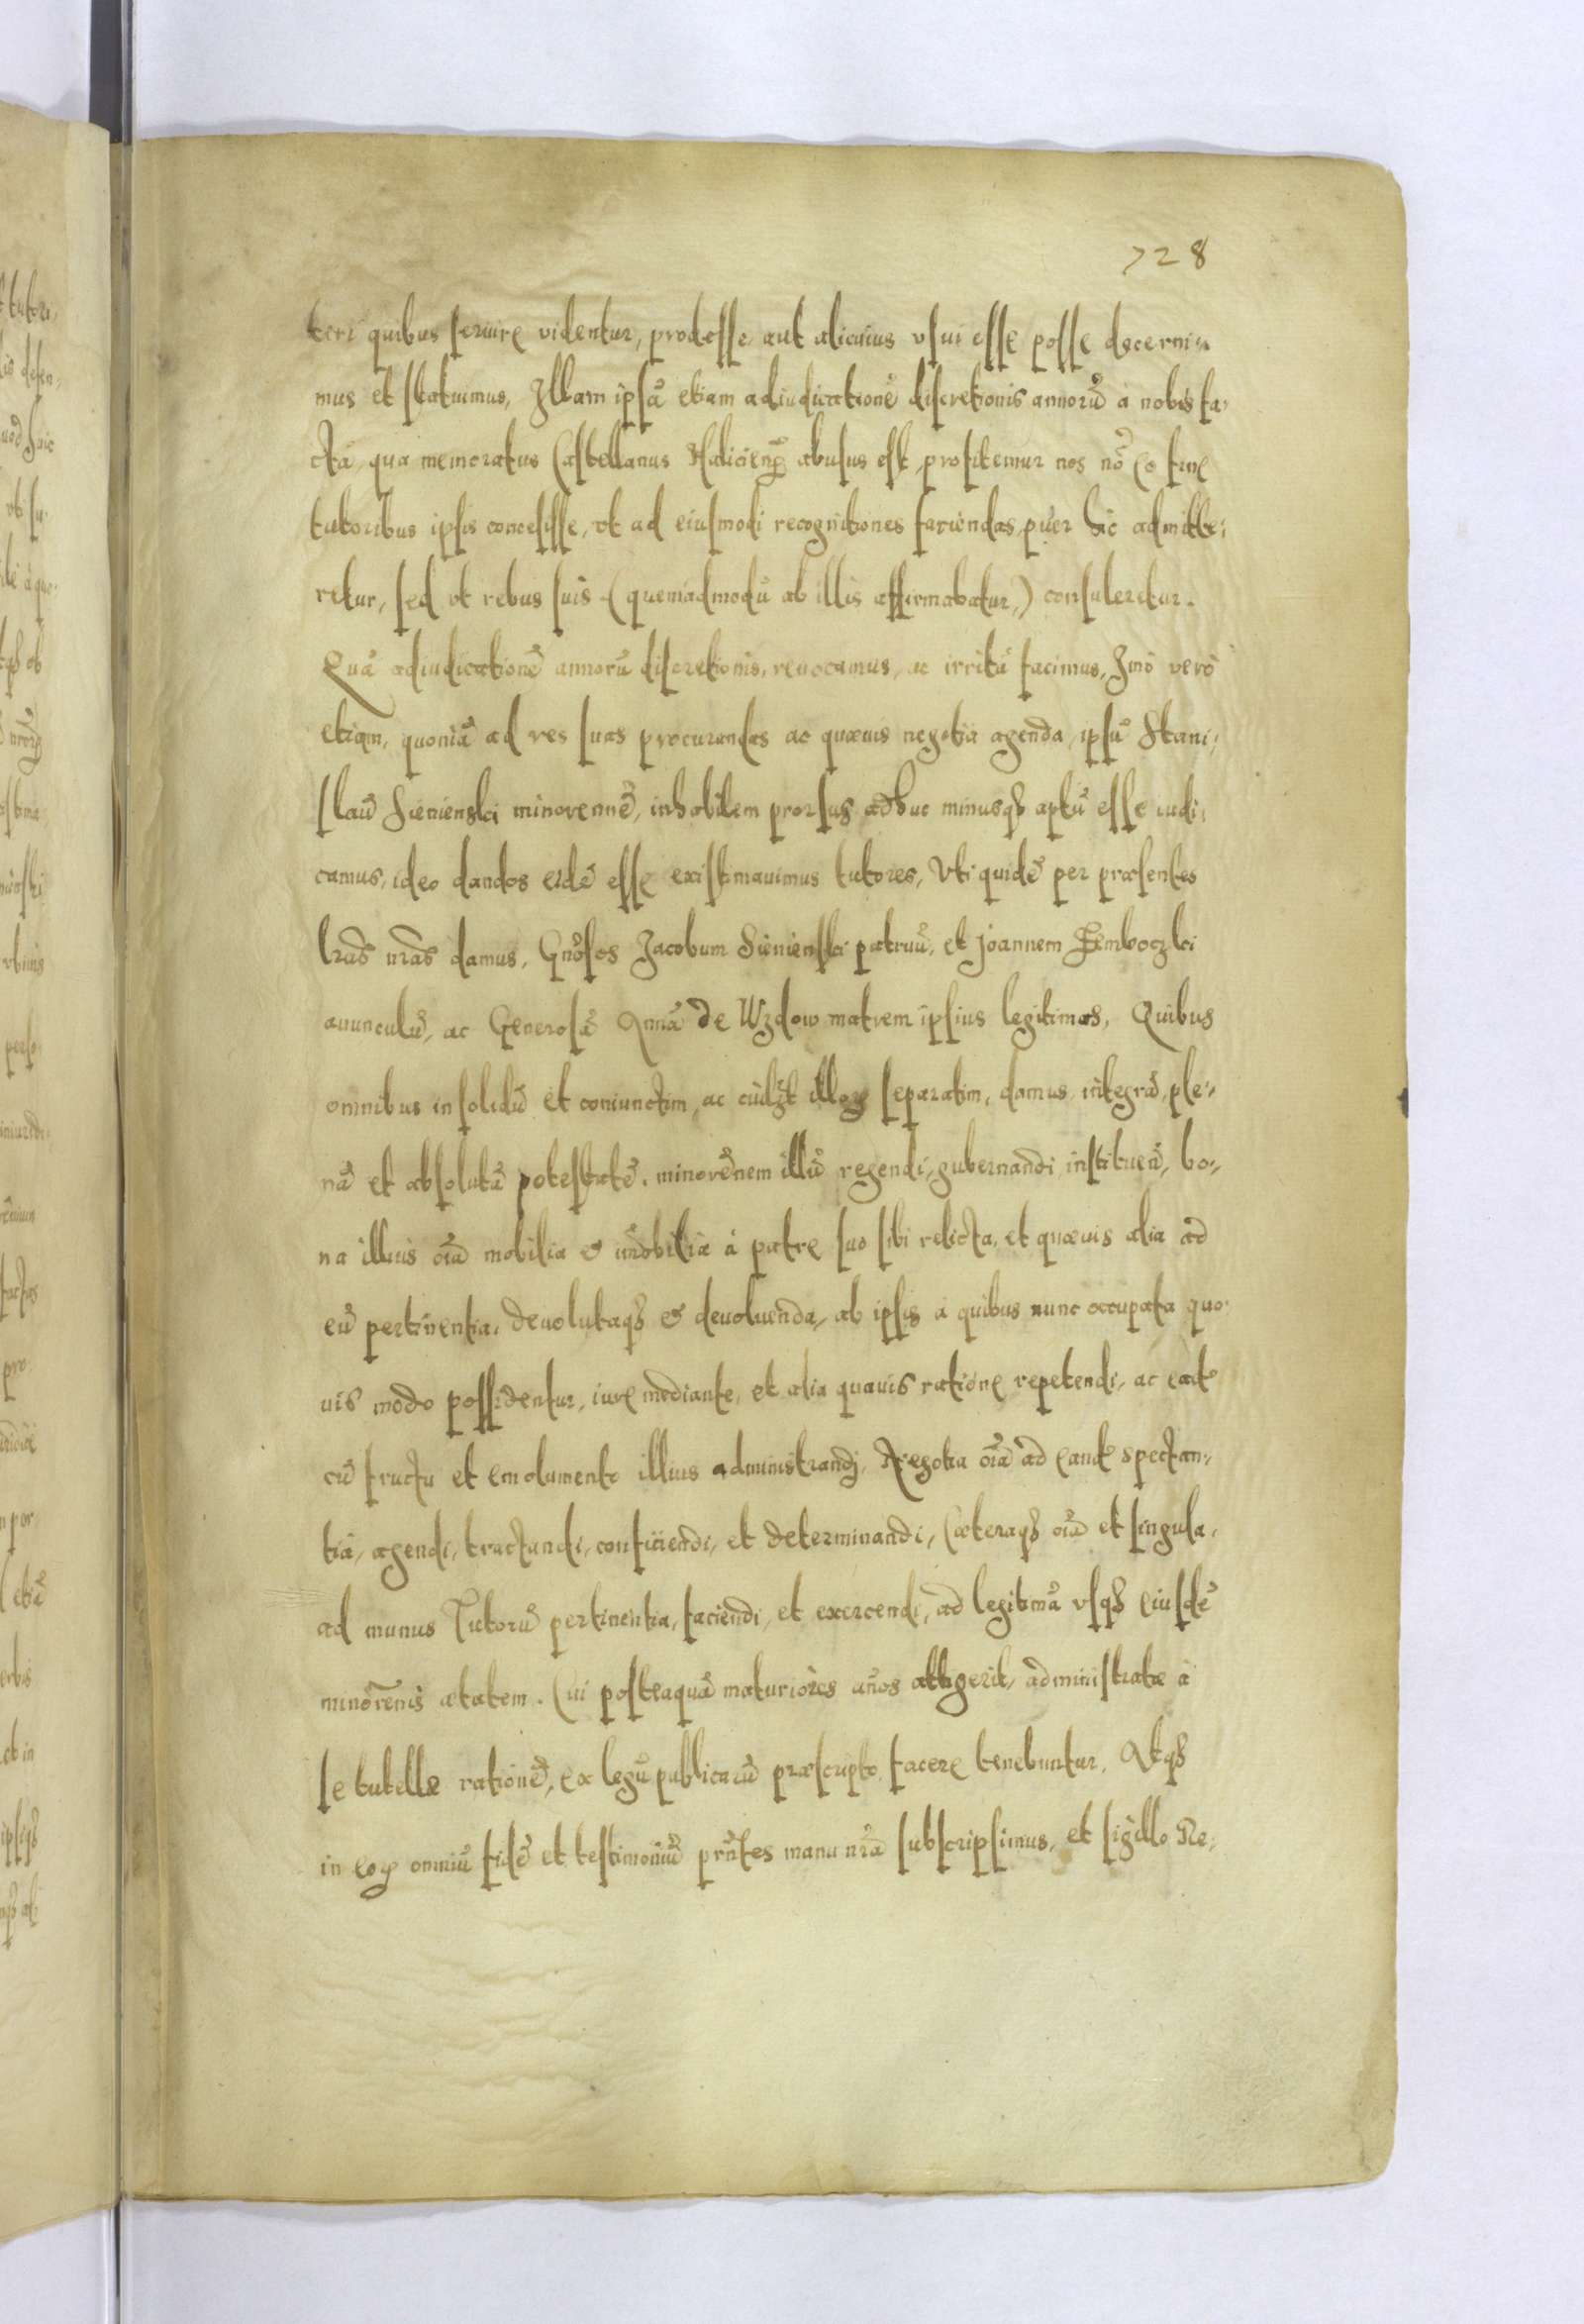 728
teri quibus seruire videntur, prodesse aut alicuius vsui esse posse decerni-
mus et statuimus, Illam ipsã etiam adiudicationẽ discretionis annorũ à nobis fa-
ctã, qua memoratus Castellanus Halicieñ abusus est, profitemur nos nõ eo fine
tutoribus ipsis concesisse, vt ad eiusmodi recognitiones faciendas, puer hic admitte-
retur, sed vt rebus suis (quemadmodũ ab illis affirmabatur,) consuleretur.
Quã adiudicationẽ annorũ discretionis, reuocamus, ac irritũ facimus, Imò verò
etiam, quoniã ad res suas procurandas ac quæuis negotia agenda, ipsũ Stani-
slaũ Sienienski minorennẽ, inhabilem prorsus adhuc minusq̃ aptũ esse iudi-
camus, ideo dandos eidẽ esse existimauimus tutores, Vti quidẽ per præsentes
lrãs nrãs damus, Gnõsos Jacobum Sienienski patruũ, et Joannem Hemboczki
auunculũ, ac Generosã Annã de Wzdow matrem ipsius legitimos, Quibus
omnibus in solidũ et coniunctim, ac cuilz̃t illoꝝ separatim, damus integrã, ple-
nã et absolutã potestatẽ, minorẽnem illũ regendi, gubernandi instituẽd, bo-
na illius oĩa mobilia & imobilia à patre suo sibi relicta, et quæuis alia ad
eũ pertinentia, deuolutaq̃ & deuoluenda, ab ipsis à quibus nunc occupata quo-
uis modo possidentur, iure mediante, et alia quauis ratione repetendi, ac
cũ fructu et emolumento illius administrandi, Negotia oĩa ad eundẽ spectan-
tia, agendi, tractandi, conficiendi, et determinandi, Cæteraq̃ oĩa et singula,
ad munus Tutorũ pertinentia, faciendi, et exercendi, ad legitimã vsq̃ eiusdẽ
minorẽnis ætatem. Cui posteaquã maturiores años attigerit, administratæ à
se tutellæ rationẽ, ex legũ publicarũ præscripto, facere tenebuntur, Atq̃
in eoꝝ omniũ fidẽ et testimoniũ prñtes manu nrã subscripsimus, et sigillo Re-